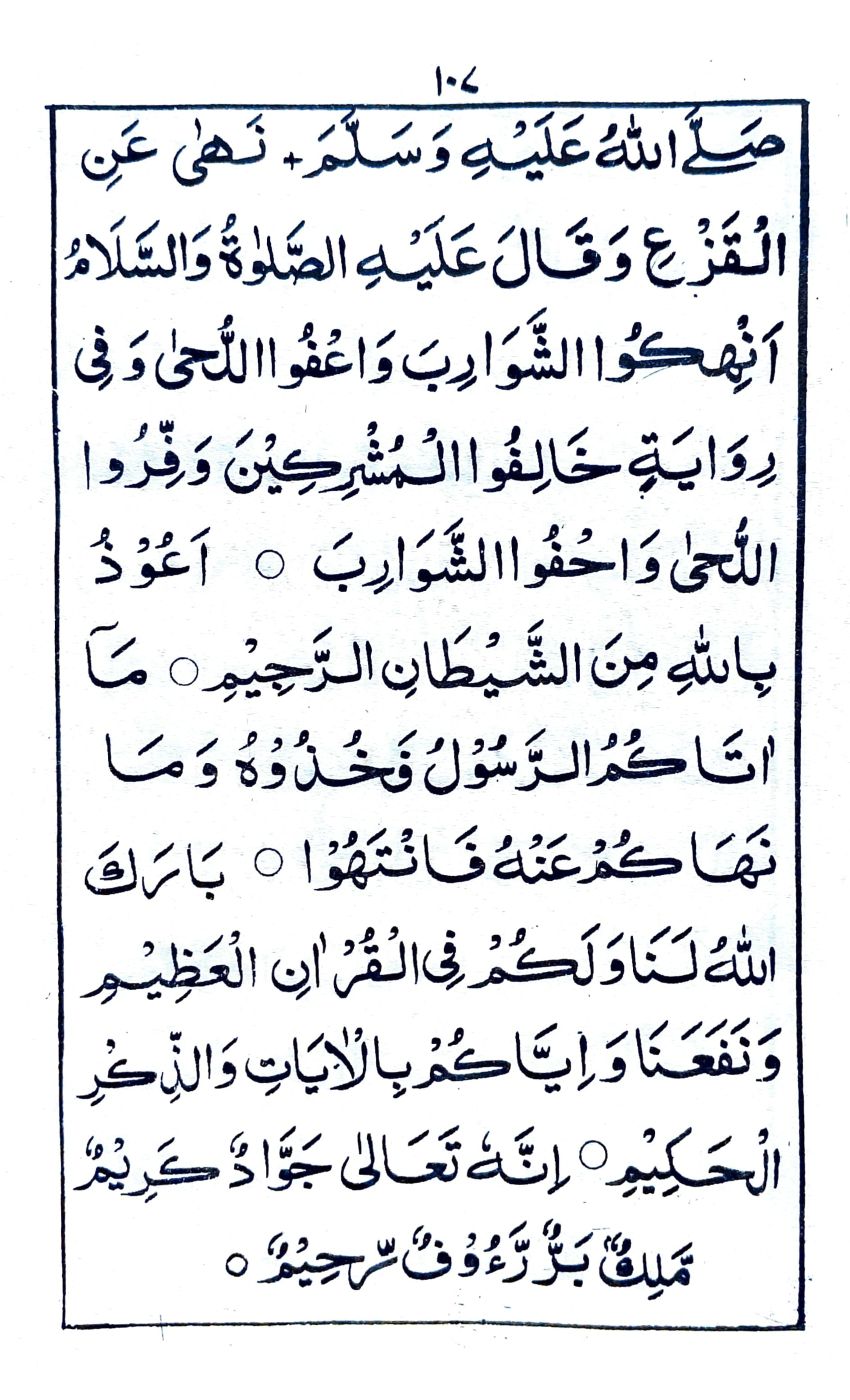 ١٠٧
صَلَّے اللّٰهُ عَلَيْهِ وَسَلَّمَ + نَهٰى عَنِ
الْقَزْعِ وَقَالَ عَلَيْهِ الصَّلٰوةُ وَالسَّلَامُ
اَنْهِكُوا الشَّوَارِبَ وَاعْفُوا اللُّحٰى وَفِى
رِوَايَةٍ خَالِفُوا الْمُشْرِكِيْنَ وَفِّرُوا
اللُّحٰى وَاحْفُوا الشَّوَارِبَ ○ اَعُوْذُ
بِاللّٰهِ مِنَ الشَّيْطَانِ الرَّجِيْمِ ○ مَآ
اٰتَاكُمُ الرَّسُوْلُ فَخُذُوْهُ وَمَا
نَهَاكُمْ عَنْهُ فَانْتَهُوْا ○ بَارَكَ
اللّٰهُ لَنَا وَلَكُمْ فِى الْقُرْاٰنِ الْعَظِيْمِ
وَنَفَعَنَا وَاِيَّاكُمْ بِالْاٰيَاتِ وَالذِّكْرِ
الْحَكِيْمِ ○ اِنَّهٗ تَعَالٰى جَوَّادٌ كَرِيْمٌ
مَّلِكٌ بَرٌّ رَّءُوْفٌ رَّحِيْمٌ ○